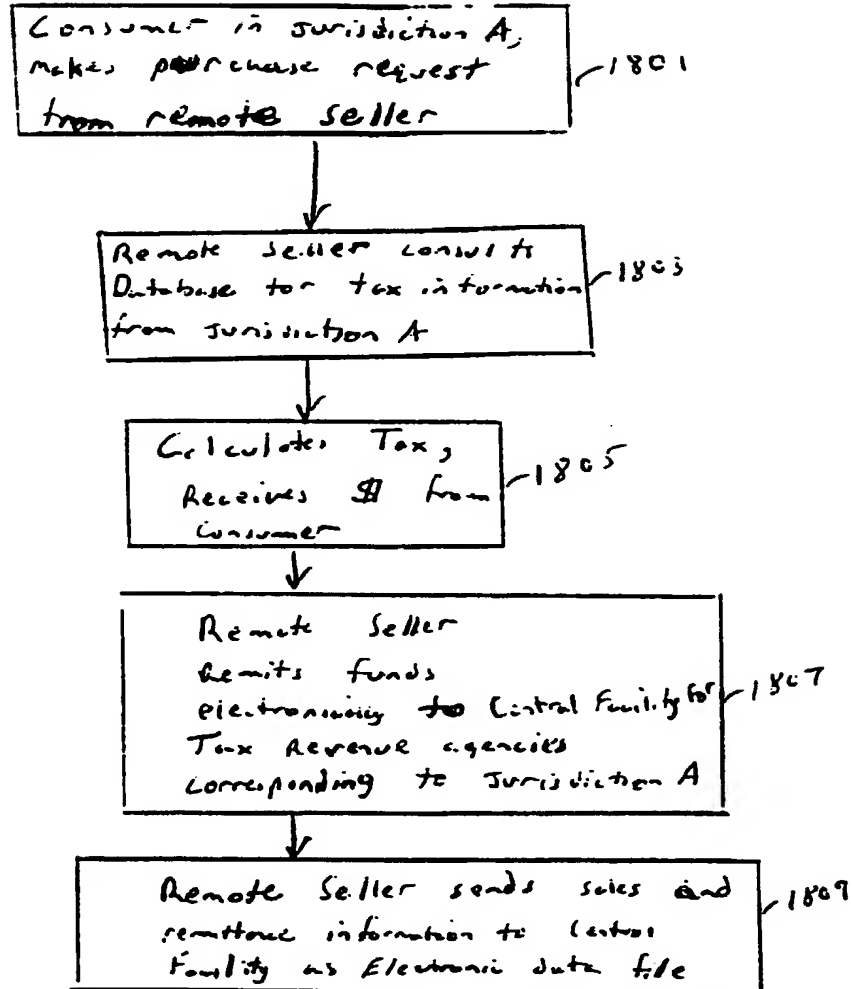 Consumer in Jurisdiction A,
makes purchase request
from remote seller
1801
Remote seller consults
Database for tax information
from Jurisdiction A
1803
Calculates Tax,
Receives $ from
consumer
1805
Remote Seller
Remits funds
electronically to Central Facility for
Tax Revenue agencies
corresponding to Jurisdiction A
1807
Remote Seller sends sales and
remittance information to Central
Facility as Electronic data file
1809